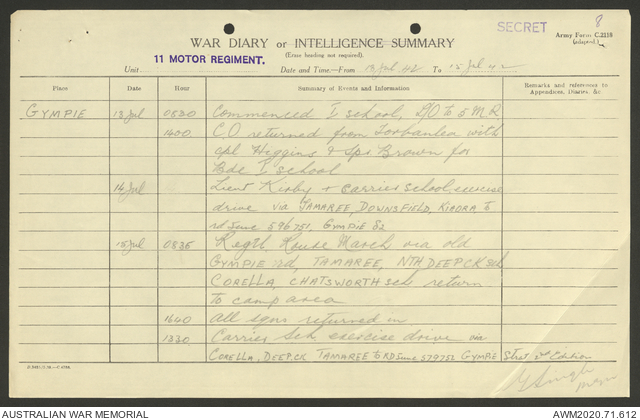 SECRET 8
WAR DIARY or INTELLIGENCE SUMMARY
(Erase heading not required).
Army Form C.2118
(adapted.)
Unit 11 MOTOR REGIMENT.
Date and Time—From 13 Jul 42 To 15 Jul 42
Place Date Hour Summary of Events and Information Remarks and references to Appendices, Diaries &c
GYMPIE 13 Jul 0530 Commenced I school, LO to 5 M.R
1600 C.O returned from Torbanlea with
cpl Higgins & Spr Brown for
Bde I school
14 Jul Lieut Kirby + carrier school, exercise
drive via TAMAREE, DOWNSFIELD, KIAORA to
rd junc 596751, GYMPIE S2
15 Jul 0835 Regtl Route March via old
GYMPIE rd, TAMAREE, NTH DEEPCK sch,
CORELLA, CHATSWORTH sch return
to camp area
1640 All sqns returned in
1330 Carrier Sch exercise drive via
CORELLA, DEEPCK TAMAREE to RD junc 579752 GYMPIE Strat 2nd Edition
AUSTRALIAN WAR MEMORIAL AWM2020.71.612